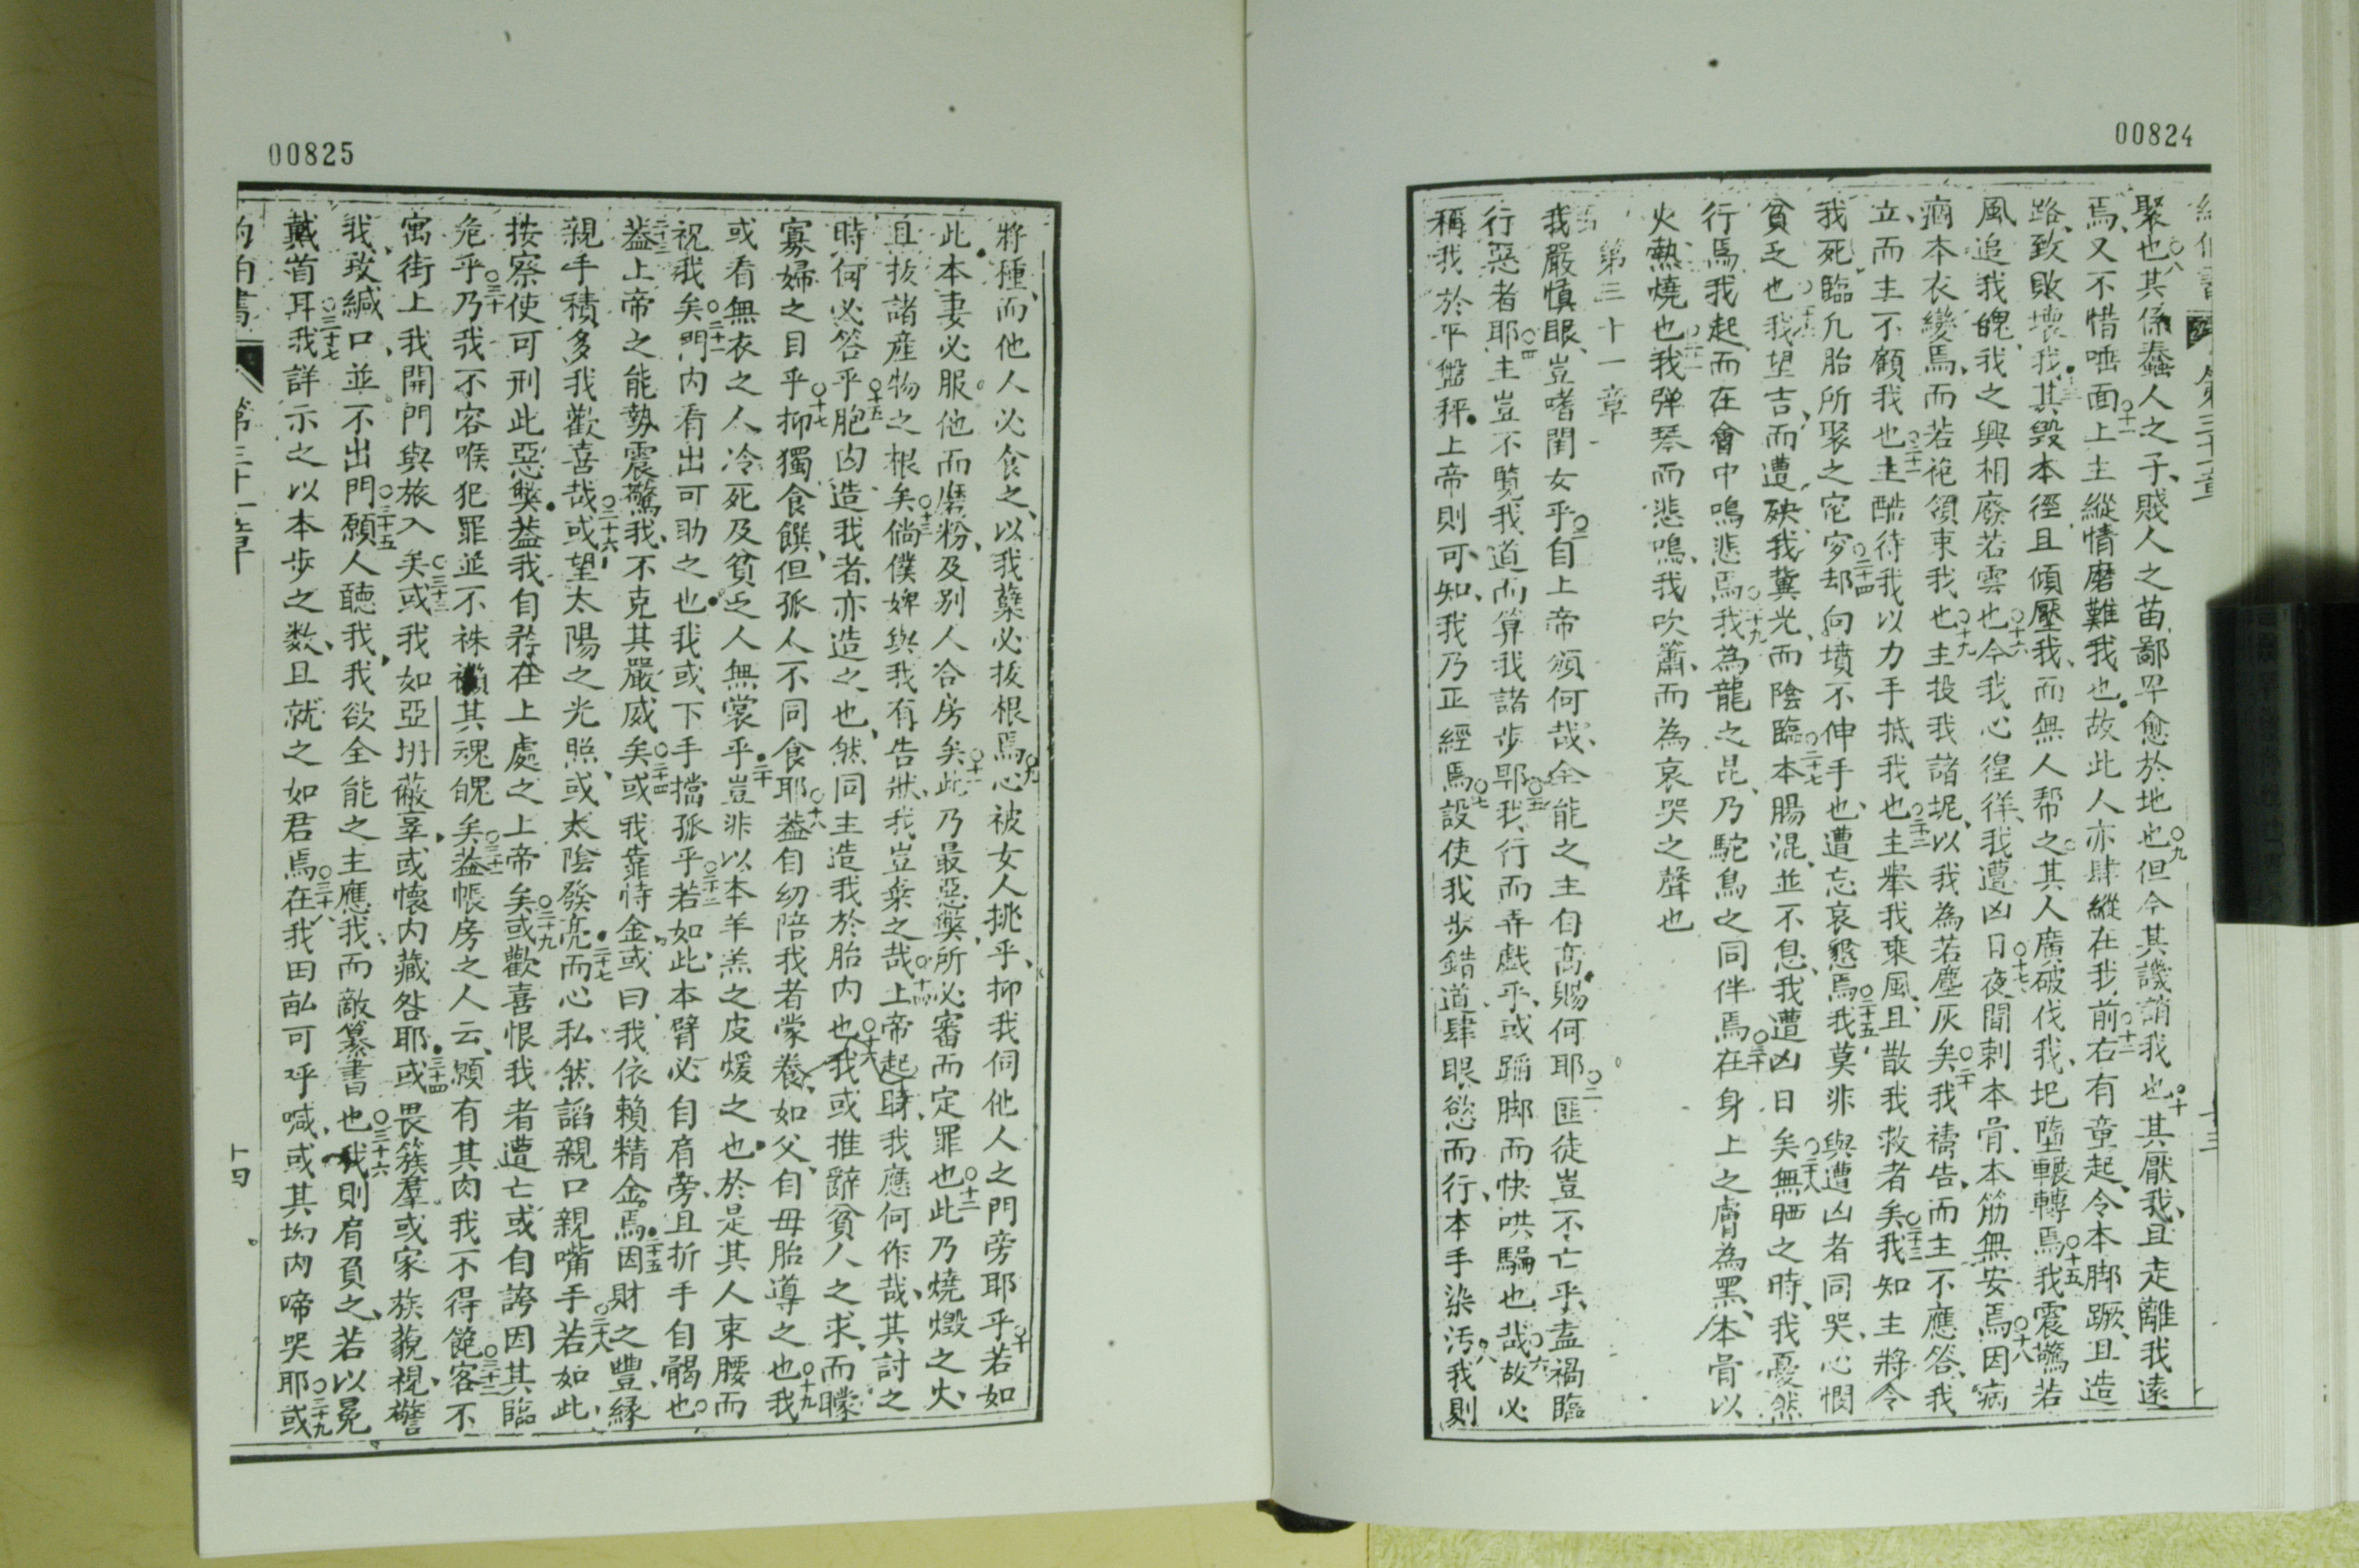 00824
聚也○八其係蠢人之子、賤人之苗、鄙罕愈於地也○九但今其譏誚我也○十其厭我、且走離我遠
焉、又不惜唾面○十一上主縱情磨難我也、故此人亦肆縱在我前○十二右有童起、令本脚蹶、且造
路、致敗壞我○十三其毀本徑、且傾壓我、而無人帮之○其人廣破伐我、圯墮輾轉焉○十五我震驚若
風追我魄、我之興相廢若雲也○十六今我心徨徉、我遭凶日○十七夜間刺本骨、本筋無安焉○十八因病
痼本衣變焉、而若袍領束我也○十九主投我諸坭、以我為若塵灰矣○二十我禱告、而主不應答、我
立、而主不顧我也○二十一主酷待我、以力手抵我也○二十二主舉我乘風、且散我救者矣○二十三我知主將令
我死臨凢胎所聚之宅○二十四穸却向墳不伸手也、遭忘哀懇焉○二十五我莫非與遭凶者同哭、心憫
貧乏也○二十六我望吉、而遭殃、我冀光、而陰臨○二十七本腸混、並不息、我遭凶日矣○二十八無晒之時、我憂然
行焉、我起、而在會中鳴悲焉○二十九我為龍之昆、乃駝鳥之同伴焉○三十在身上之膚為黑、本骨以
火熱燒也○三十一我弹琴而悲鳴、我吹簫、而為哀哭之聲也
第三十一章
我嚴慎眼、豈嗜閨女乎○二自上帝頒何哉、全能之主自高賜何耶○三匪徒豈不亡乎、盍禍臨
行惡者耶○四主豈不覽我道而算我諸步耶○五我行而弄戲乎、或蹈脚而快哄騙也哉○六故必
稱我於平盤秤、上帝則可知、我乃正經焉○七設使我步錯道、肆眼慾而行、本手染汚○八我則
00825
將種、而他人必食之、以我蘖必拔根焉○九心被女人挑乎、抑我伺他人之門旁耶乎○十若如
此、本妻必服他而磨粉、及别人合房矣○十一此乃最惡獘、所必審而定罪也○十二此乃燒燬之火、
且拔諸產物之根矣○十三倘僕婢與我有告狀、我豈棄之哉○十四上帝起時、我應何作哉、其討之
時、何必答乎○十五胞内造我者、亦造之也、然同主造我於胎内也○十六我或推辭貧人之求、而矇
寡婦之目乎○十七抑獨食饌、但孤人不同食耶○十八葢自幼陪我者蒙養、如父、自毋胎導之也○十九我
或看無衣之人冷死、及貧乏人無裳乎○二十豈非以本羊羔之皮煖之也、於是其人束腰而
祝我矣○二十一門内看出可助之也、我或下手擋孤乎○二十二若如此、本臂必自肩旁、且折手自髑也○二十三
葢上帝之能勢震驚我、不克其嚴威矣○二十四或我靠恃金、或曰我依賴精金焉○二十五因財之豐、緣
親手積多我歡喜哉○二十六或望太陽之光照、或太陰發亮○二十七而心私然諂、親口親嘴手○二十八若如此、
按察使可刑此惡獘、葢我自矜在上處之上帝矣○二十九或歡喜恨我者遭亡、或自誇因其臨
危乎○三十乃我不容喉犯罪、並不祩其魂魄矣○三十一葢帳房之人云、願有其肉我不得飽○三十二客不
寓街上、我開門與旅入矣○三十三或我如亞坍蔽辜、或懷内藏咎耶○三十四或畏簇羣、或家族藐視、警
我、致緘口並不出門○三十五願人聽我、我欲全能之主應我、而敵纂書也○三十六我則肩負之、若以冕
戴首耳○三十七我詳示之以本步之数、且就之如君焉○三十八在我田畝可呼喊、或其坳内啼哭耶○三十九或
第三十一章
十四